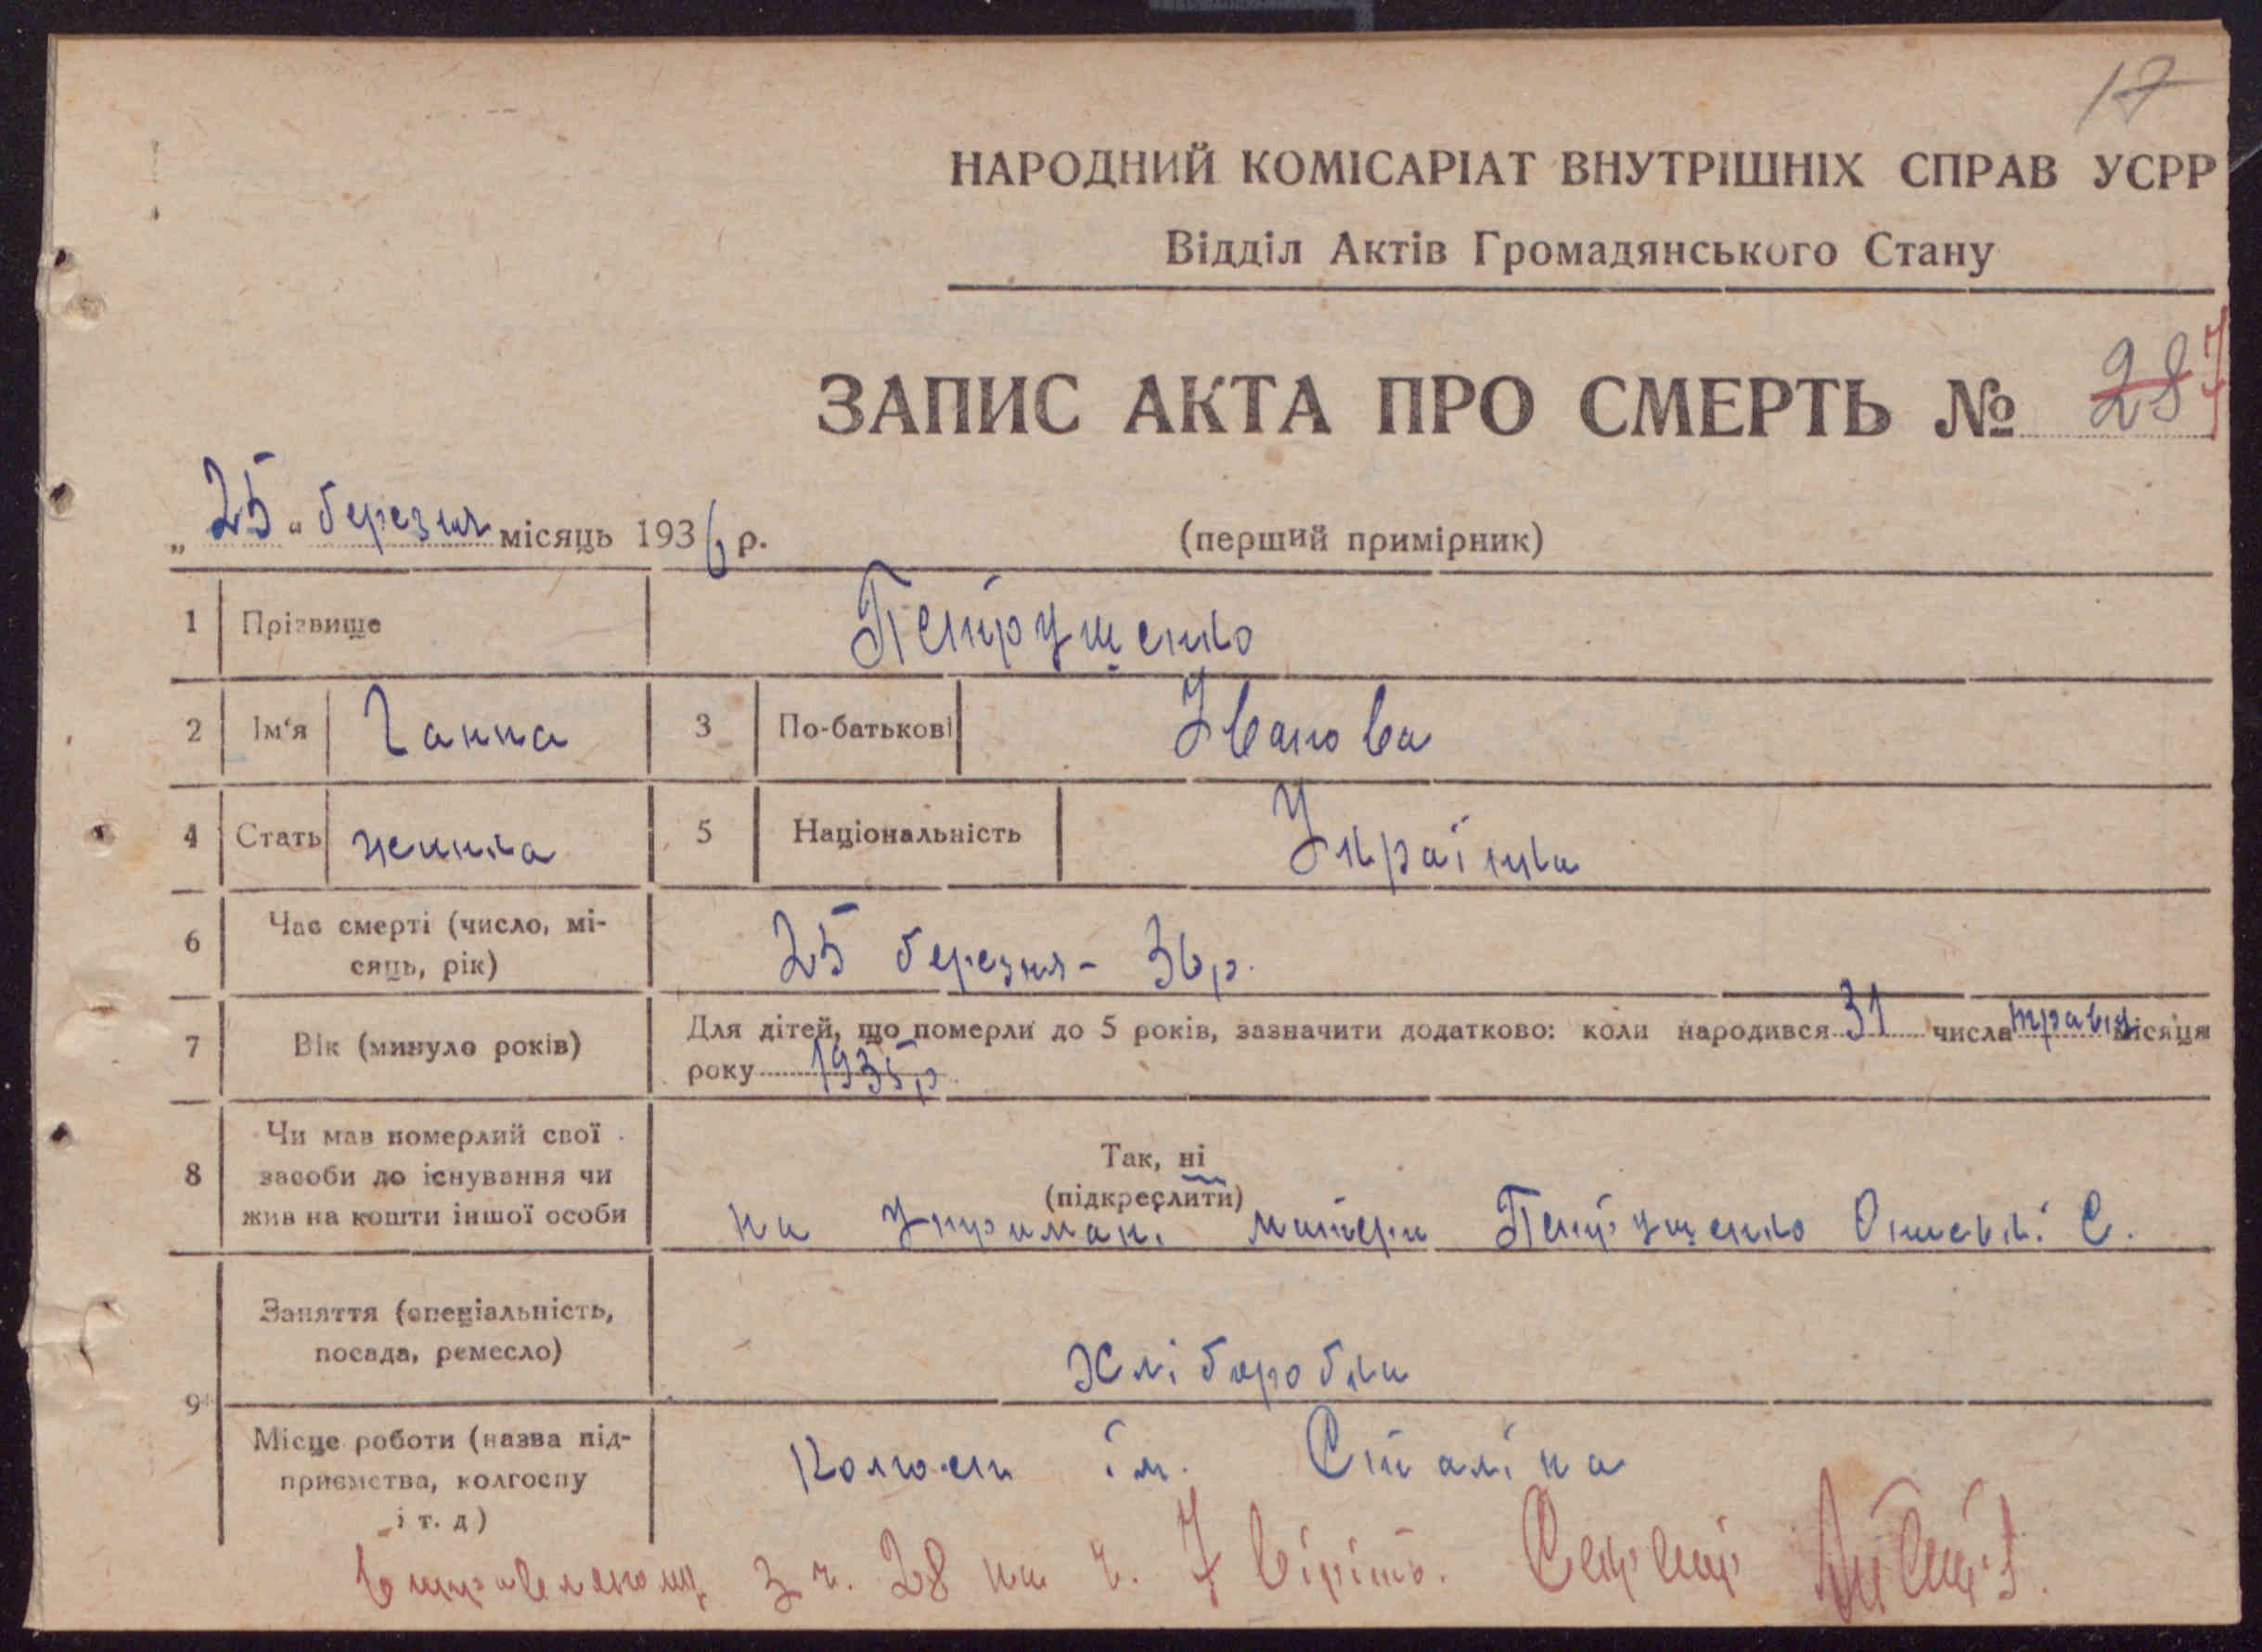 17
НАРОДНИЙ КОМІСАРІАТ ВНУТРІШНІХ СПРАВ УСРР
Відділ Актів Громадянського Стану
ЗАПИС АКТА ПРО СМЕРТЬ № 28 7
„25" березня місяць 1936 р. (перший примірник)
1 Прізвище Петрущенко
2 Ім'я Ганна 3 По-батькові Іванова
4 Стать жинка 5 Національність Українка
6 Час смерті (число, мі-
сяць, рік) 25 березня - 36 р.
7 Вік (минуло років) Для дітей, що померли до 5 років, зазначити додатково: коли народився 31 числа травня місяця
року 1935 р
8 Чи мав померлий свої
засоби до існування чи
жив на кошти іншої особи
Так, ні
(підкреслити)
на утриман. матери Петрущенко С.
9 Заняття (спеціальність,
посада, ремесло) Хліборобка
Місце роботи (назва під-
приємства, колгоспу
і т. д) Колгосп ім. Сталіна
з ч. 28 на ч. 7 вірить.